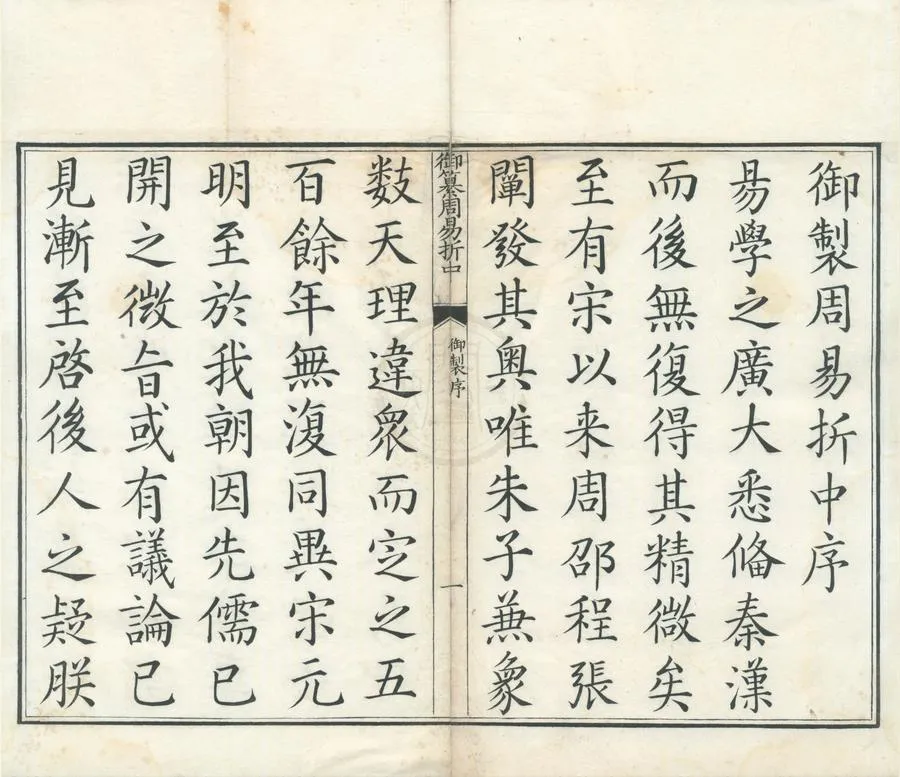 御製周易折中序
易學之廣大悉俻秦漢
而後無復得其精微矣
至有宋以来周邵程張
闡發其奧唯朱子兼象
御纂周易折中
御製序
一
数天理違衆而定之五
百餘年無復同異宋元
明至於我朝因先儒已
開之微㫖或有議論已
見漸至啓後人之疑朕